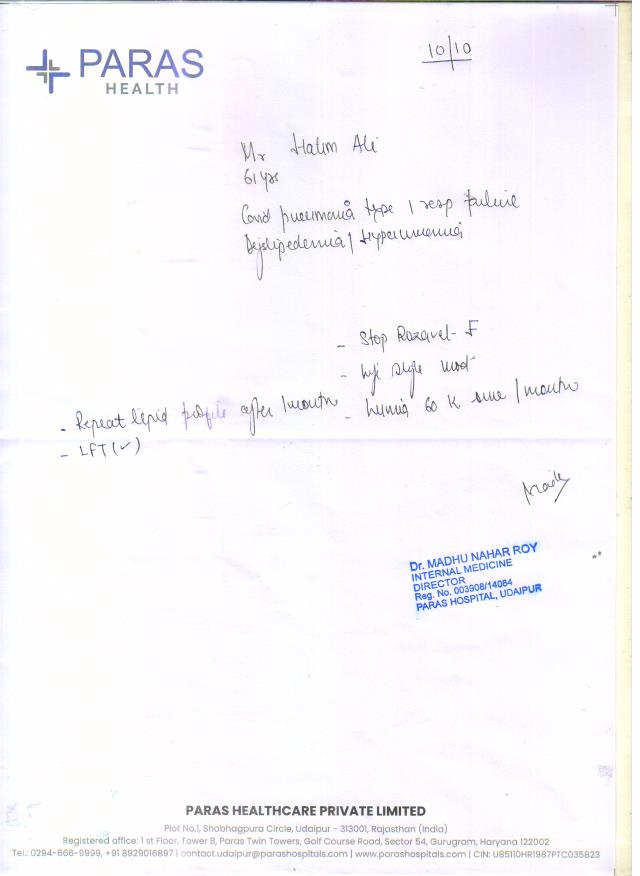 10/10
PARAS
HEALTH
Mr Halim Ali
61 yrs
Covid pneumonia type 1 resp failure
Dyslipedemia / Hyperuremia
- Stop Rozavel - F
- life style mod
- Repeat lipid profile after 1 month
- LFT (✓)
- Lumia 60 K once / month
Dr. MADHU NAHAR ROY
INTERNAL MEDICINE
DIRECTOR
Reg. No. 003908/14084
PARAS HOSPITAL, UDAIPUR
PARAS HEALTHCARE PRIVATE LIMITED
Plot No.1, Shobhagpura Circle, Udaipur - 313001, Rajasthan (India)
Registered office: 1 st Floor, Tower B, Paras Twin Towers, Golf Course Road, Sector 54, Gurugram, Haryana 122002
Tel.: 0294-666-9999, +91 8929016897 | contact.udaipur@parashospitals.com | www.parashospitals.com | CIN: U85110HR1987PTC035823